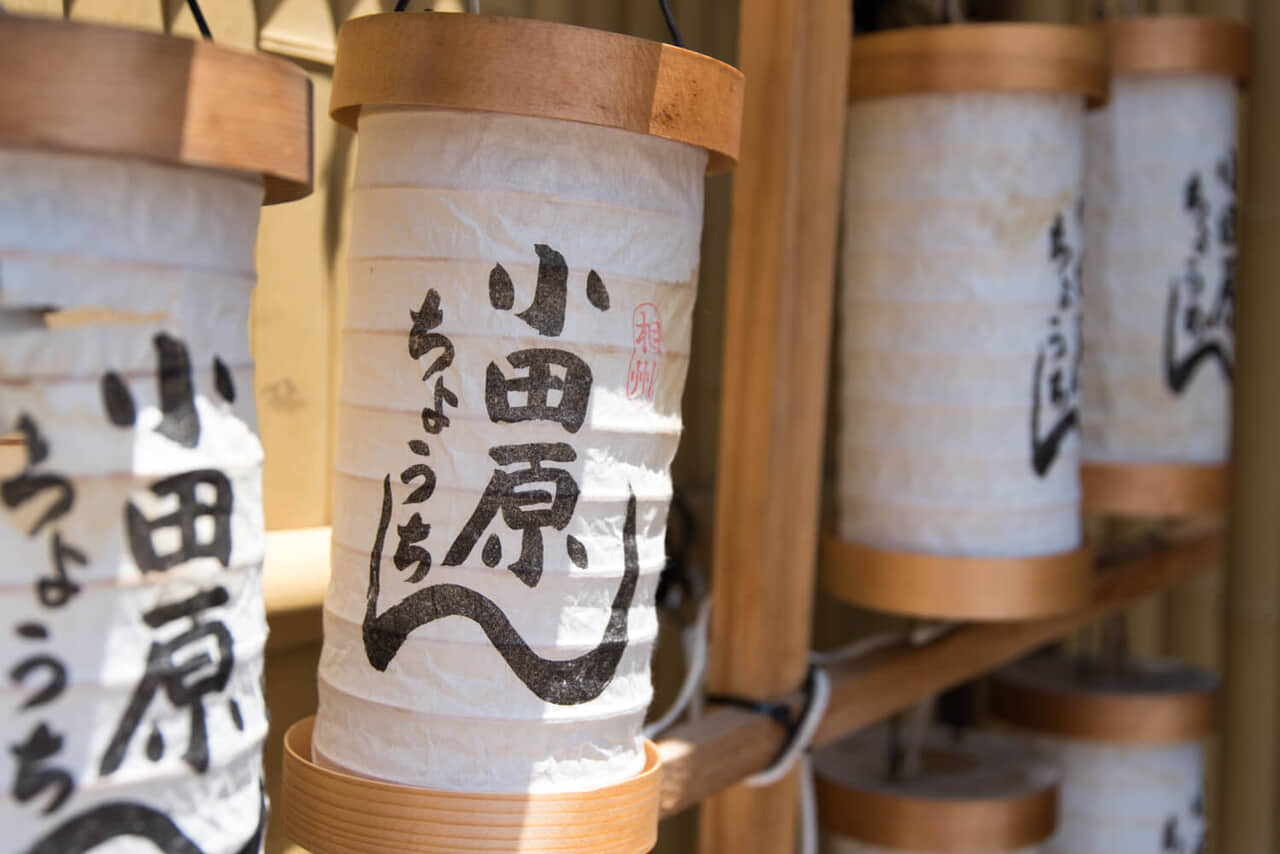 小田原
ちょうちん
相州
小田原
ちょうちん
ちょうちん